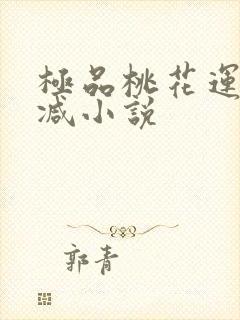 極品桃花運
减小説
郭青